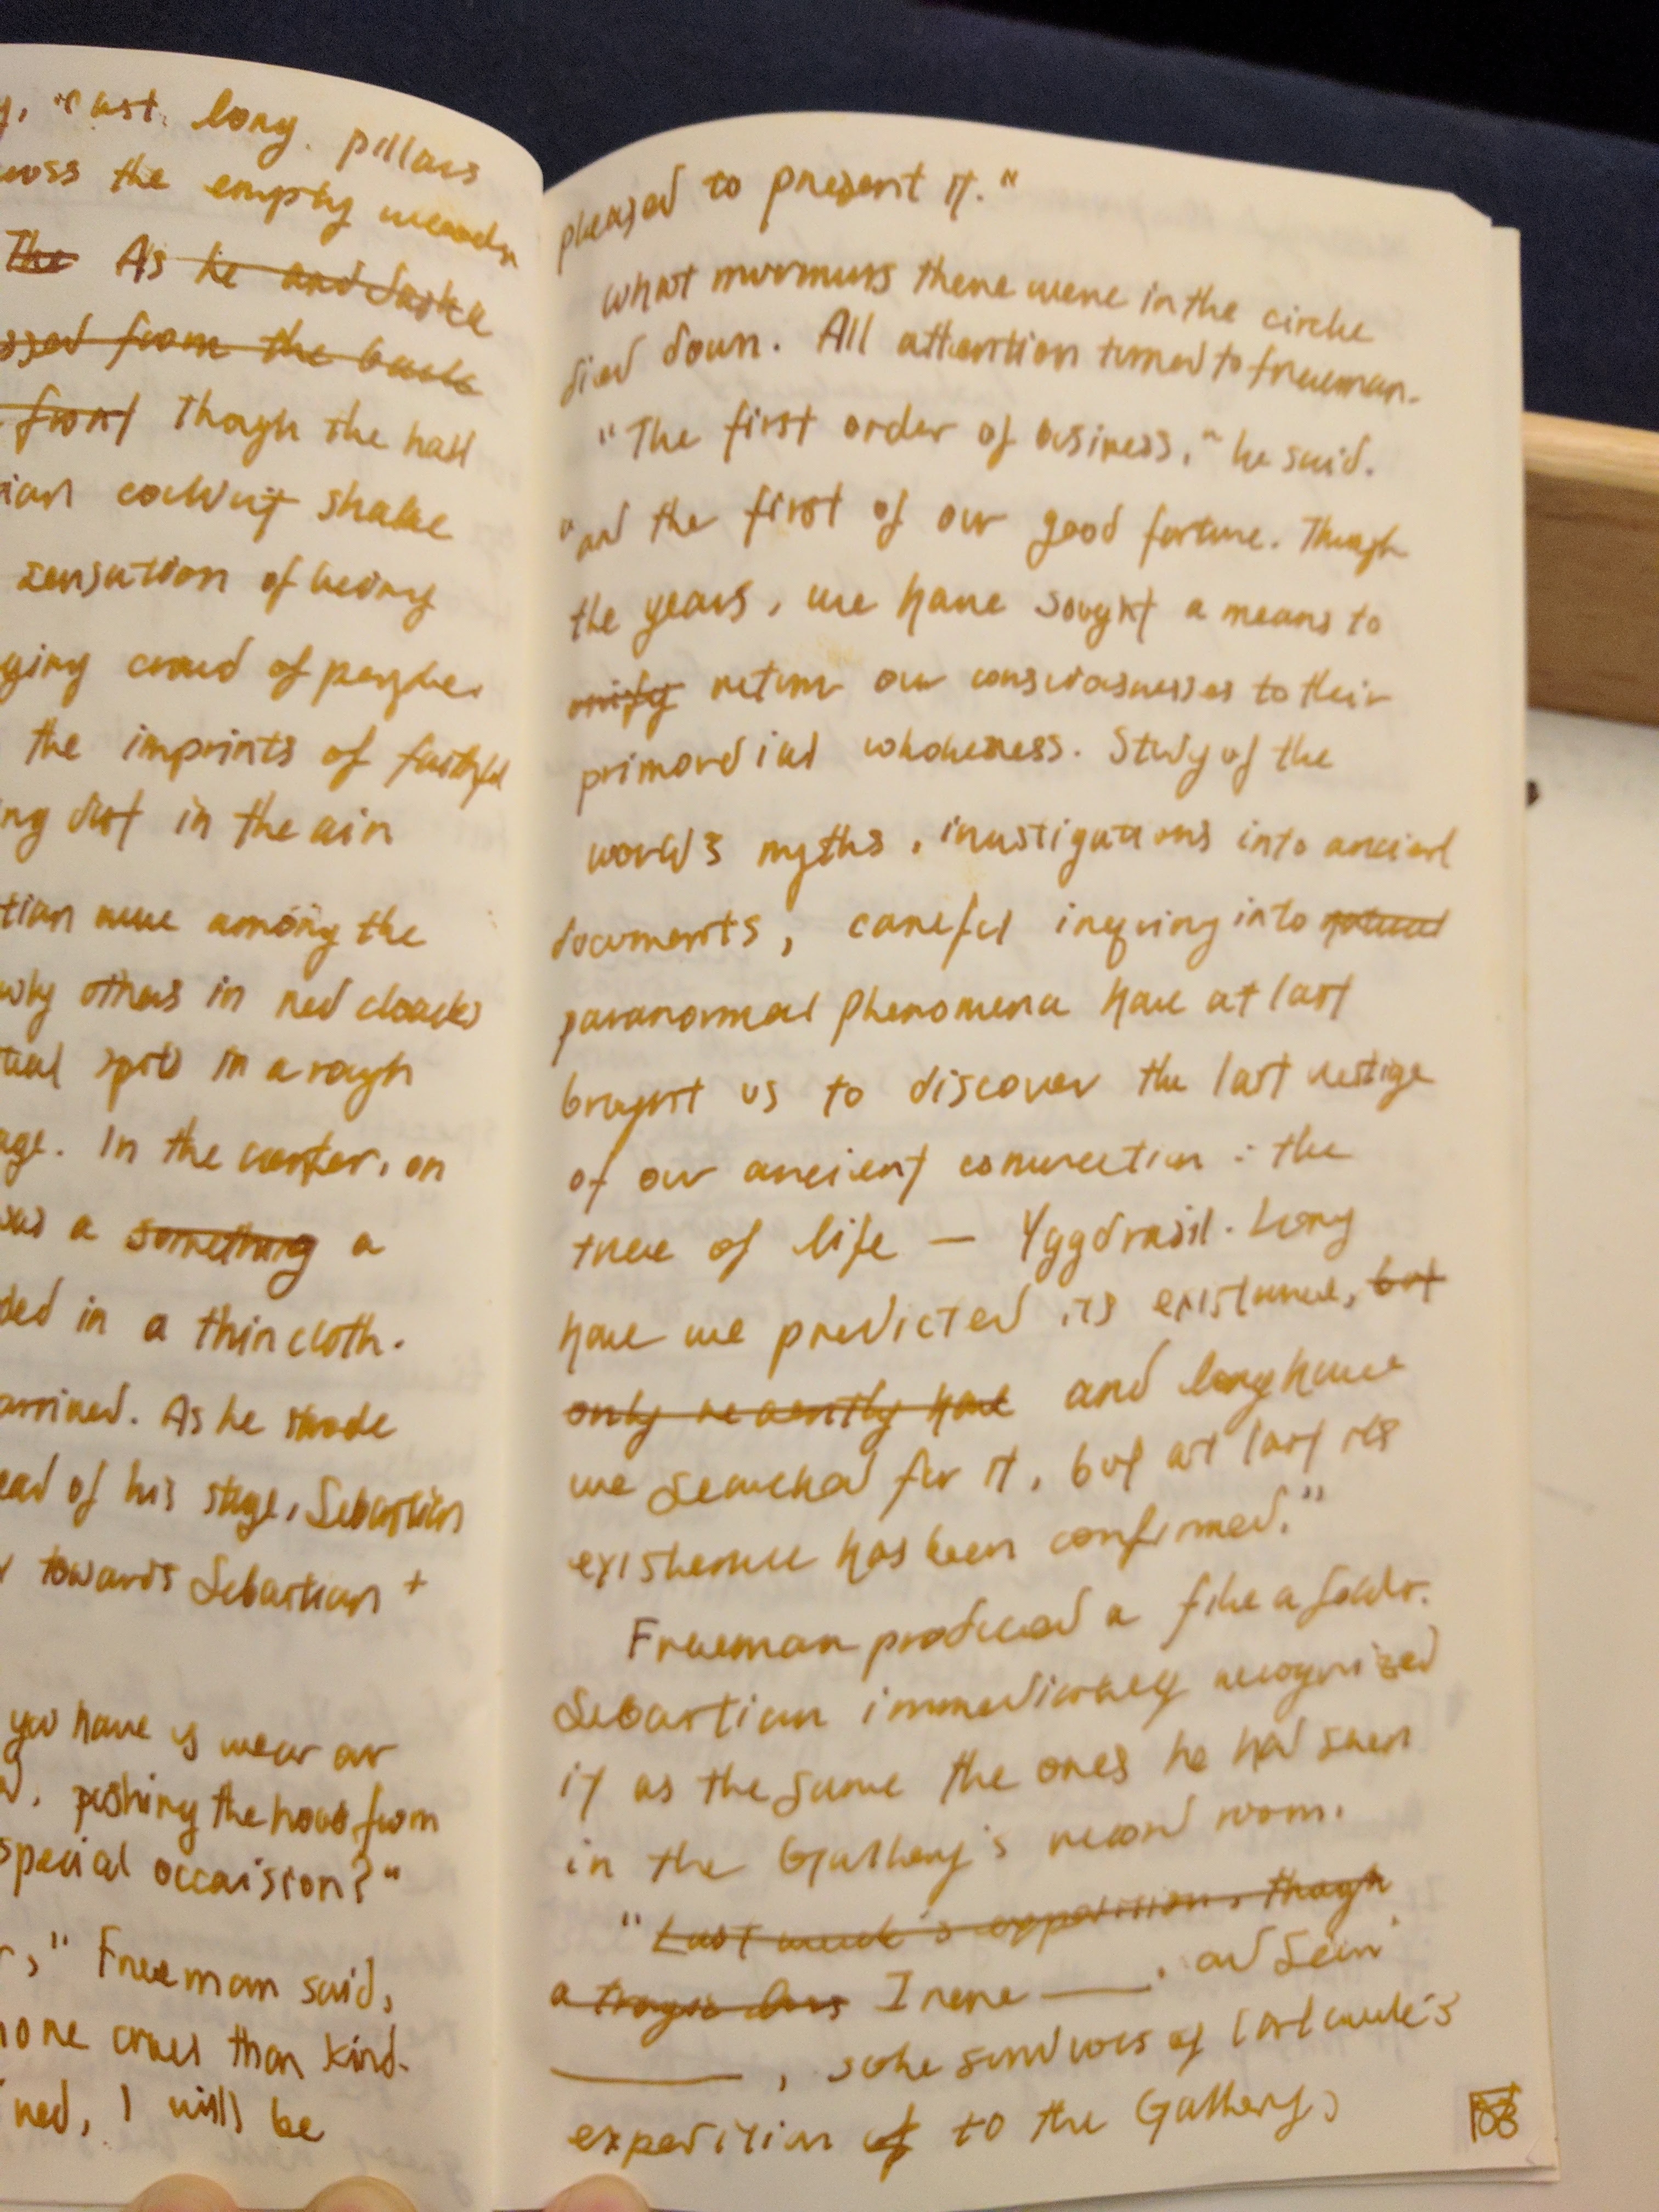 , cast long pillars
the empty
The As he
from the back
front Though the hall
shake
sensation of being
crowd of people.
the imprints of faithful
dust in the air
were among the
others in red cloacks
in a rough
In the center, on
a something a
in a thin cloth.
arrived. As he strode
of his stage, Sebastian
towards Sebastian +
you have is wear our
pushing the hood from
special occaision?"
," Freeman said,
more cruel than kind.
, I will be
pleased to present it."
What murmurs there were in the circle
died down. All attention turned to Freeman.
"The first order of business," he said.
"and the first of our good fortune. Though
the years, we have sought a means to
unify return our consciousnesses to their
primordial wholeness. Study of the
world's myths, investigations into ancient
documents, careful inquiry into natural
paranormal phenomena have at last
brought us to discover the last vestige
of our ancient connection: the
tree of life — Yggdrasil. Long
have we predicted its existence, but
only recently have and long have
we searched for it, but at last its
existence has been confirmed."
Freeman produced a file a folder.
Sebastian immediately recognized
it as the same the ones he had seen
in the Gallery's record room.
"Last week's expedition, though
a tragic loss Irene ____, and Sein
____, sole survivors of last week's
expedition of to the Gallery,